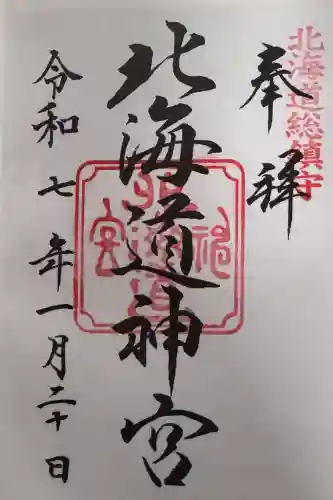 北海道総鎮守
奉拝
北海道神宮
令和七年一月二十日